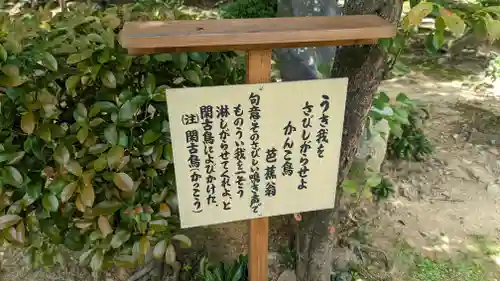 うき我を
さびしがらせよ
かんこ鳥
芭蕉翁
句意・そのさびしい鳴き声で、
ものうい我を一そう
淋しがらせてくれよ、と
閑古鳥によびかけた。
(注)閑古鳥(かっこう)